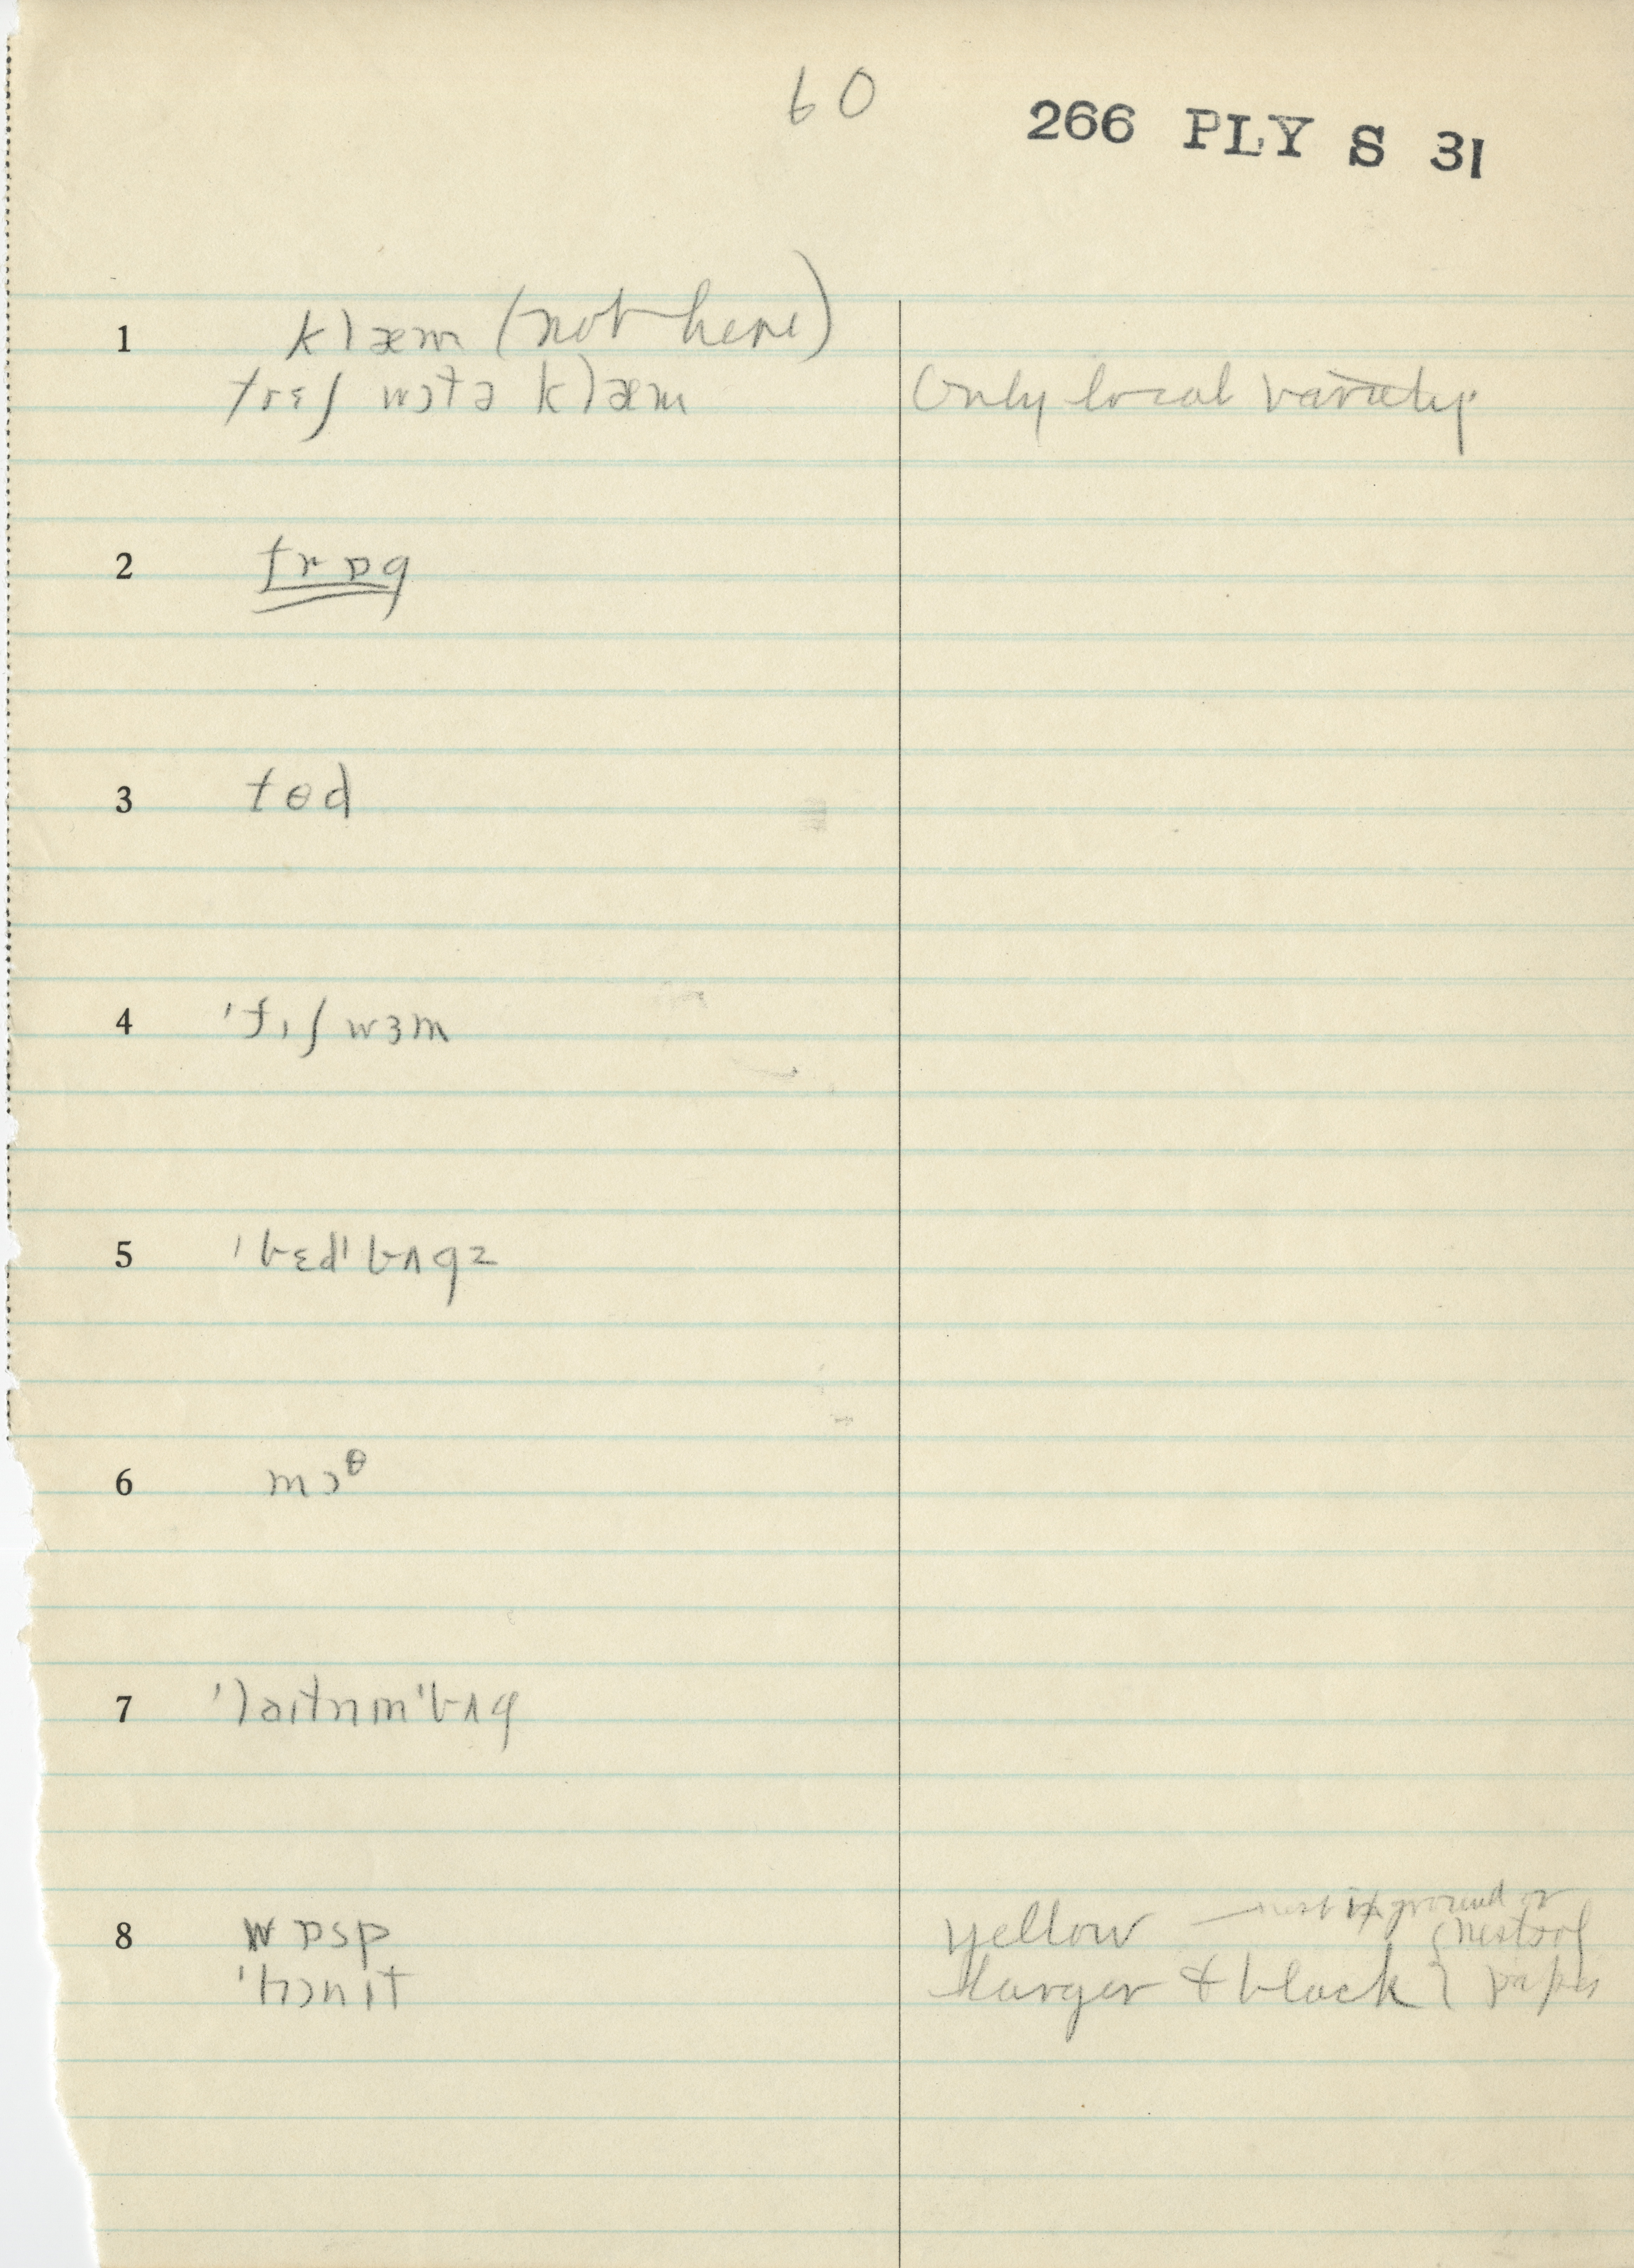 60
266 PLY S 31
1 klæm (not here)
frɛʃ wɔtə klæm Only local variety.
2 frɒg
3 tɵd
4 'fɪʃwɜm
5 'bɛd'bʌgz
6 mɔᶿ
7 'laɪtnɪn'bʌg
8 wɒsp yellow — nest in ground or
'hɔnɪt larger & black } paper